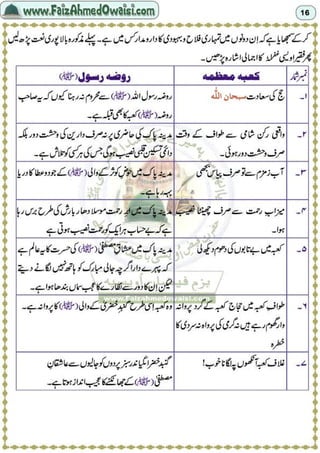 www.FaizAhmedOwaisi.com
16
کر کے سمجھایا ہے کہ اِن دونوں میں تمہاری فلاح و بہبودی کا دارومدار اس میں ہے۔ پہلے مذکورہ بالا پوری نعت پڑھ لیں
پھر فقیر اویسی غفرلہٗ کا اجمالی اشارہ پڑھیں۔
نمبر شمار
کعبہ معظمہ
روضہ رسول (ﷺ)
۱۔
حج کی سعادت سبحان اللہ
روضہ رسول اللہ (ﷺ) سے محروم نہ رہنا کیوں کہ یہ صاحب
روضہ (ﷺ) کعبہ کا بھی قبلہ ہے۔
۲۔
واقعی رکن شامی سے طواف کے وقت
صرف وحشت دور ہوئی۔
مدینہ پاک کی حاضری پر نہ صرف دارین کی وحشت دور بلکہ
دائمی تسکین قلبی نصیب ہوگی جس کی ہر کسی کو تلاش ہے۔
۳۔
آب زمزم سے تو صرف پیاس بجھی
مدینہ پاک میں حوضِ کوثر کے والی (ﷺ) کے جود و عطا کا دریا
بہہ رہا ہے۔
۴۔
میزابِ رحمت سے صرف چھینٹا نصیب
ہوا۔
مدینہ پاک میں ابرِ رحمت موسلا دھار بارش کی طرح برس رہا
ہے کہ بے حساب ہر ایک کو رحمت نصیب ہوتی ہے
۵۔
کعبہ میں بے تابوں کی دھوم دیکھ لی
مدینہ پاک میں عشاقِ مصطفیٰ (ﷺ) کی حسرت کا یہ عالم ہے
کہ پہرے دار اگرچہ جالی مبارک کو ہاتھ نہیں لگانے دیتے
لیکن اِن کا دور سے نظارے کا عجیب سماں بندھا ہوا ہے۔
۶۔
طواف کعبہ میں حجاج کعبہ کے گرد پروانہ
وار گھوم رہے ہیں نہ گرمی کی پرواہ نہ سردی کا
خطرہ
وہ کعبہ اسی طرح گنبدِ خضریٰ کے والی (ﷺ) کا پروانہ ہے۔
۷۔
غلافِ کعبہ آنکھوں پہ لگانا خوب!
گنبدِ خضرا کیا اندر سبز پردوں کو جالیوں سے عاشقانِ
مصطفیٰ (ﷺ) کے جھانکنے کا عجیب انداز ہوتا ہے۔
www.faizahmedowaisi.com
www.FaizAhmedOwaisi.com